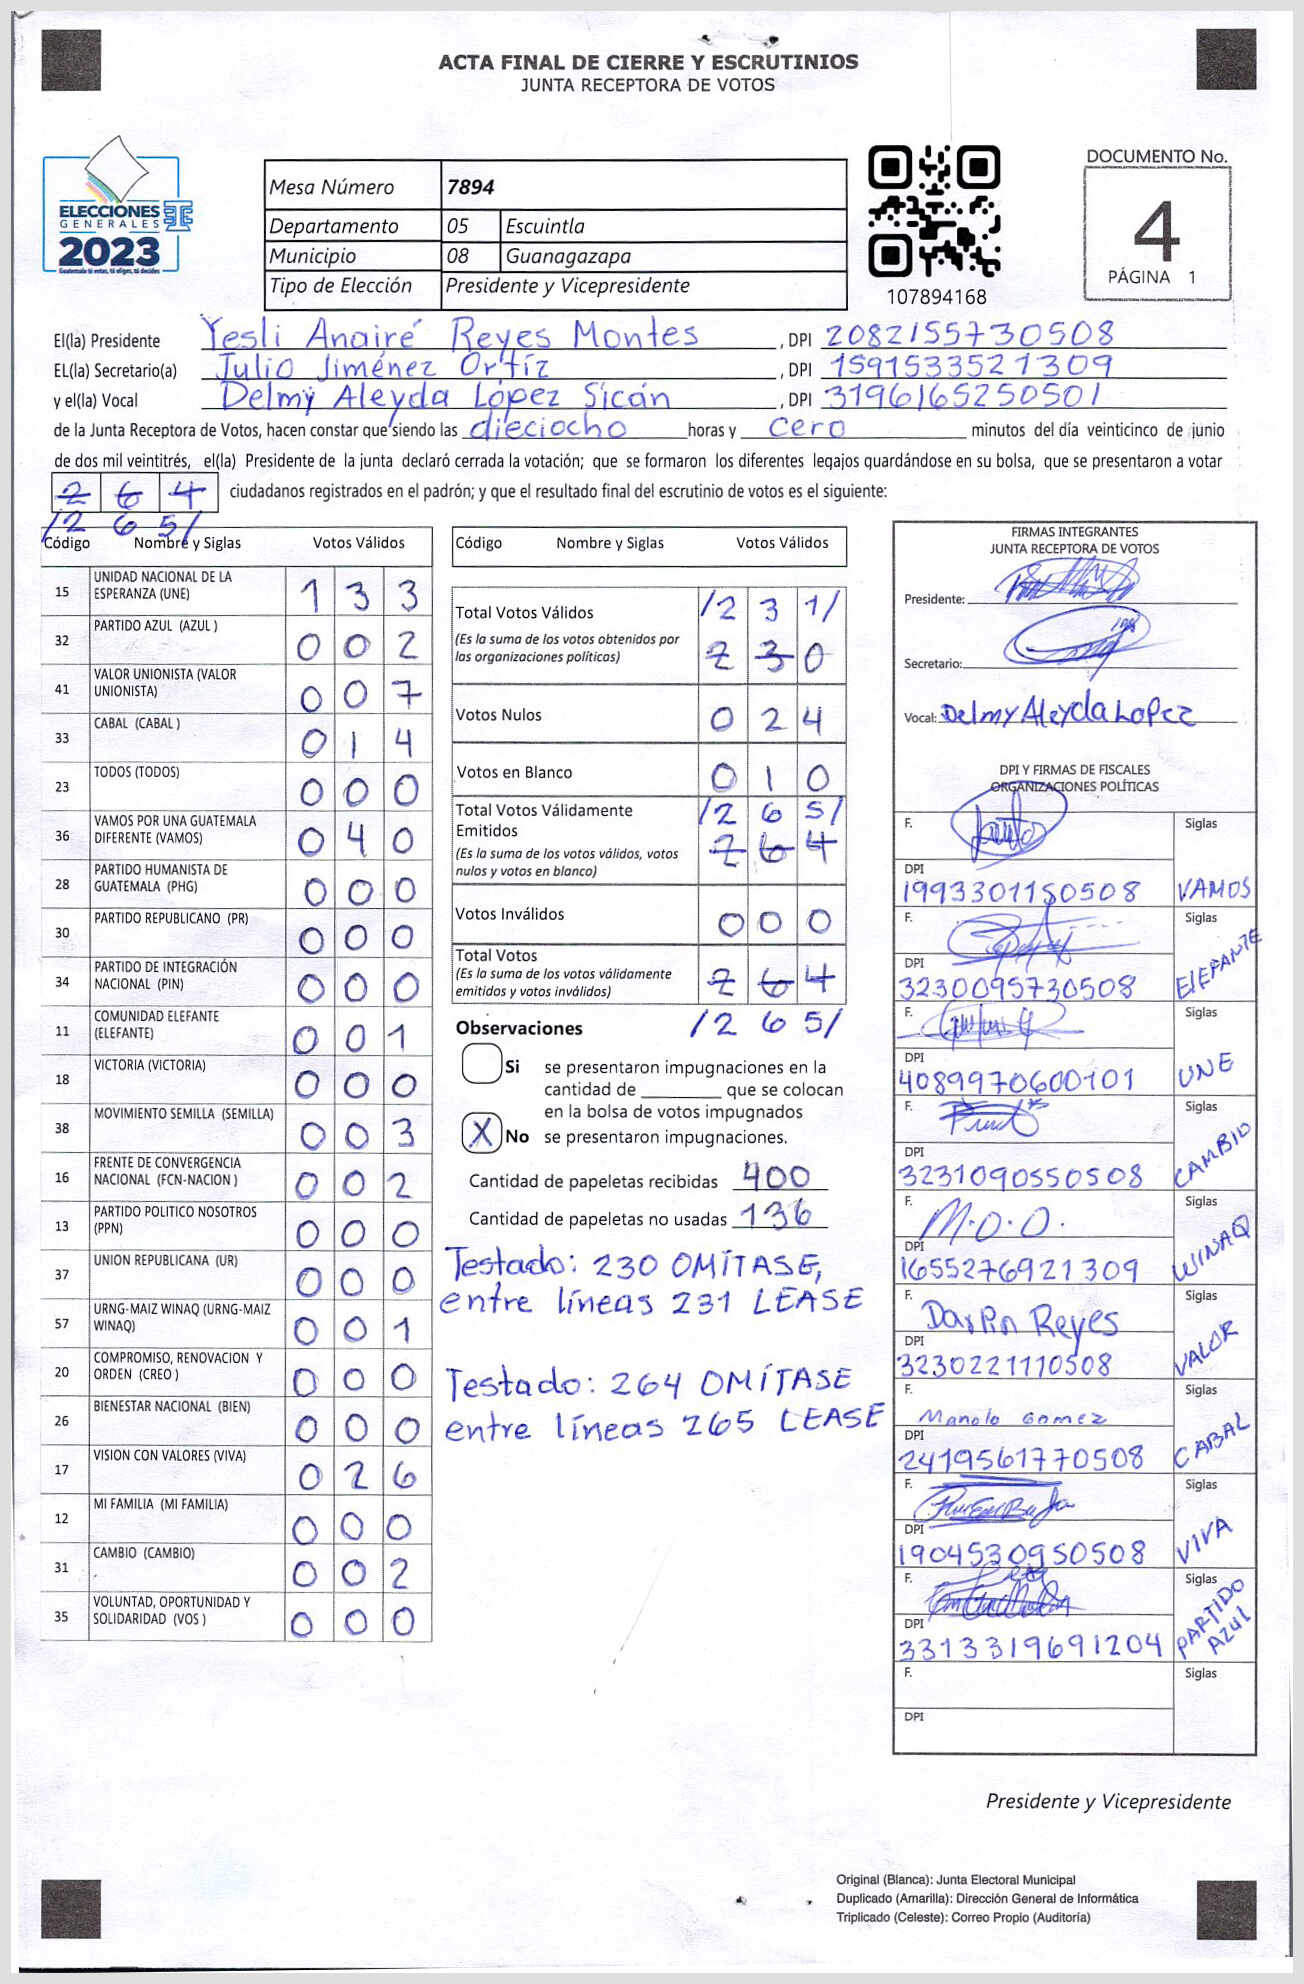 ACTA FINAL DE CIERRE Y ESCRUTINIOS
JUNTA RECEPTORA DE VOTOS
ELECCIONES
GENERALES
2023
Guatemala tú votas, tú eliges, tú decides
Mesa Número 7894
Departamento 05 Escuintla
Municipio 08 Guanagazapa
Tipo de Elección Presidente y Vicepresidente
107894168
DOCUMENTO No.
4
PÁGINA 1
El(la) Presidente Yesli Anairé Reyes Montes, DPI 2082155730508
EL(la) Secretario(a) Julio Jiménez Ortíz, DPI 1591533521309
y el(la) Vocal Delmy Aleyda López Sicán, DPI 3196165250501
de la Junta Receptora de Votos, hacen constar que siendo las dieciocho horas y cero minutos del día veinticinco de junio
de dos mil veintitrés, el(la) Presidente de la junta declaró cerrada la votación; que se formaron los diferentes legajos guardándose en su bolsa, que se presentaron a votar
264 ciudadanos registrados en el padrón; y que el resultado final del escrutinio de votos es el siguiente:
/265/
Código Nombre y Siglas Votos Válidos
15 UNIDAD NACIONAL DE LA ESPERANZA (UNE) 133
32 PARTIDO AZUL (AZUL ) 002
41 VALOR UNIONISTA (VALOR UNIONISTA) 007
33 CABAL (CABAL ) 014
23 TODOS (TODOS) 000
36 VAMOS POR UNA GUATEMALA DIFERENTE (VAMOS) 040
28 PARTIDO HUMANISTA DE GUATEMALA (PHG) 000
30 PARTIDO REPUBLICANO (PR) 000
34 PARTIDO DE INTEGRACIÓN NACIONAL (PIN) 000
11 COMUNIDAD ELEFANTE (ELEFANTE) 001
18 VICTORIA (VICTORIA) 000
38 MOVIMIENTO SEMILLA (SEMILLA) 003
16 FRENTE DE CONVERGENCIA NACIONAL (FCN-NACION ) 002
13 PARTIDO POLITICO NOSOTROS (PPN) 000
37 UNION REPUBLICANA (UR) 000
57 URNG-MAIZ WINAQ (URNG-MAIZ WINAQ) 001
20 COMPROMISO, RENOVACION Y ORDEN (CREO ) 000
26 BIENESTAR NACIONAL (BIEN) 000
17 VISION CON VALORES (VIVA) 026
12 MI FAMILIA (MI FAMILIA) 000
31 CAMBIO (CAMBIO) 002
35 VOLUNTAD, OPORTUNIDAD Y SOLIDARIDAD (VOS ) 000
Código Nombre y Siglas Votos Válidos
Total Votos Válidos /231/
(Es la suma de los votos obtenidos por las organizaciones políticas) 230
Votos Nulos 024
Votos en Blanco 010
Total Votos Válidamente Emitidos /265/
(Es la suma de los votos válidos, votos nulos y votos en blanco) 264
Votos Inválidos 000
Total Votos
(Es la suma de los votos válidamente emitidos y votos inválidos) 264
/265/
Observaciones
Si se presentaron impugnaciones en la
cantidad de ________ que se colocan
en la bolsa de votos impugnados
X No se presentaron impugnaciones.
Cantidad de papeletas recibidas 400
Cantidad de papeletas no usadas 136
Testado: 230 OMÍTASE,
entre líneas 231 LEASE
Testado: 264 OMÍTASE
entre líneas 265 LEASE
FIRMAS INTEGRANTES
JUNTA RECEPTORA DE VOTOS
Presidente:
Secretario:
Vocal: Delmy Aleyda Lopez
DPI Y FIRMAS DE FISCALES
ORGANIZACIONES POLÍTICAS
F. Siglas
DPI
1993301150508 VAMOS
F. Siglas
DPI
3230095730508 ElEFANTE
F. Siglas
DPI
4089970600101 UNE
F. Siglas
DPI
3231090550508 CAMBIO
F. M.O.O. Siglas
DPI
1655276921309 WINAQ
F. Siglas
Reyes
DPI
3230221110508 VALOR
F. Siglas
Manolo Gomez
DPI
2419561770508 CABAL
F. Siglas
DPI
1904530950508 VIVA
F. Siglas
DPI
3313319691204 PARTIDO AZUL
F. Siglas
DPI
Presidente y Vicepresidente
Original (Blanca): Junta Electoral Municipal
Duplicado (Amarilla): Dirección General de Informática
Triplicado (Celeste): Correo Propio (Auditoría)